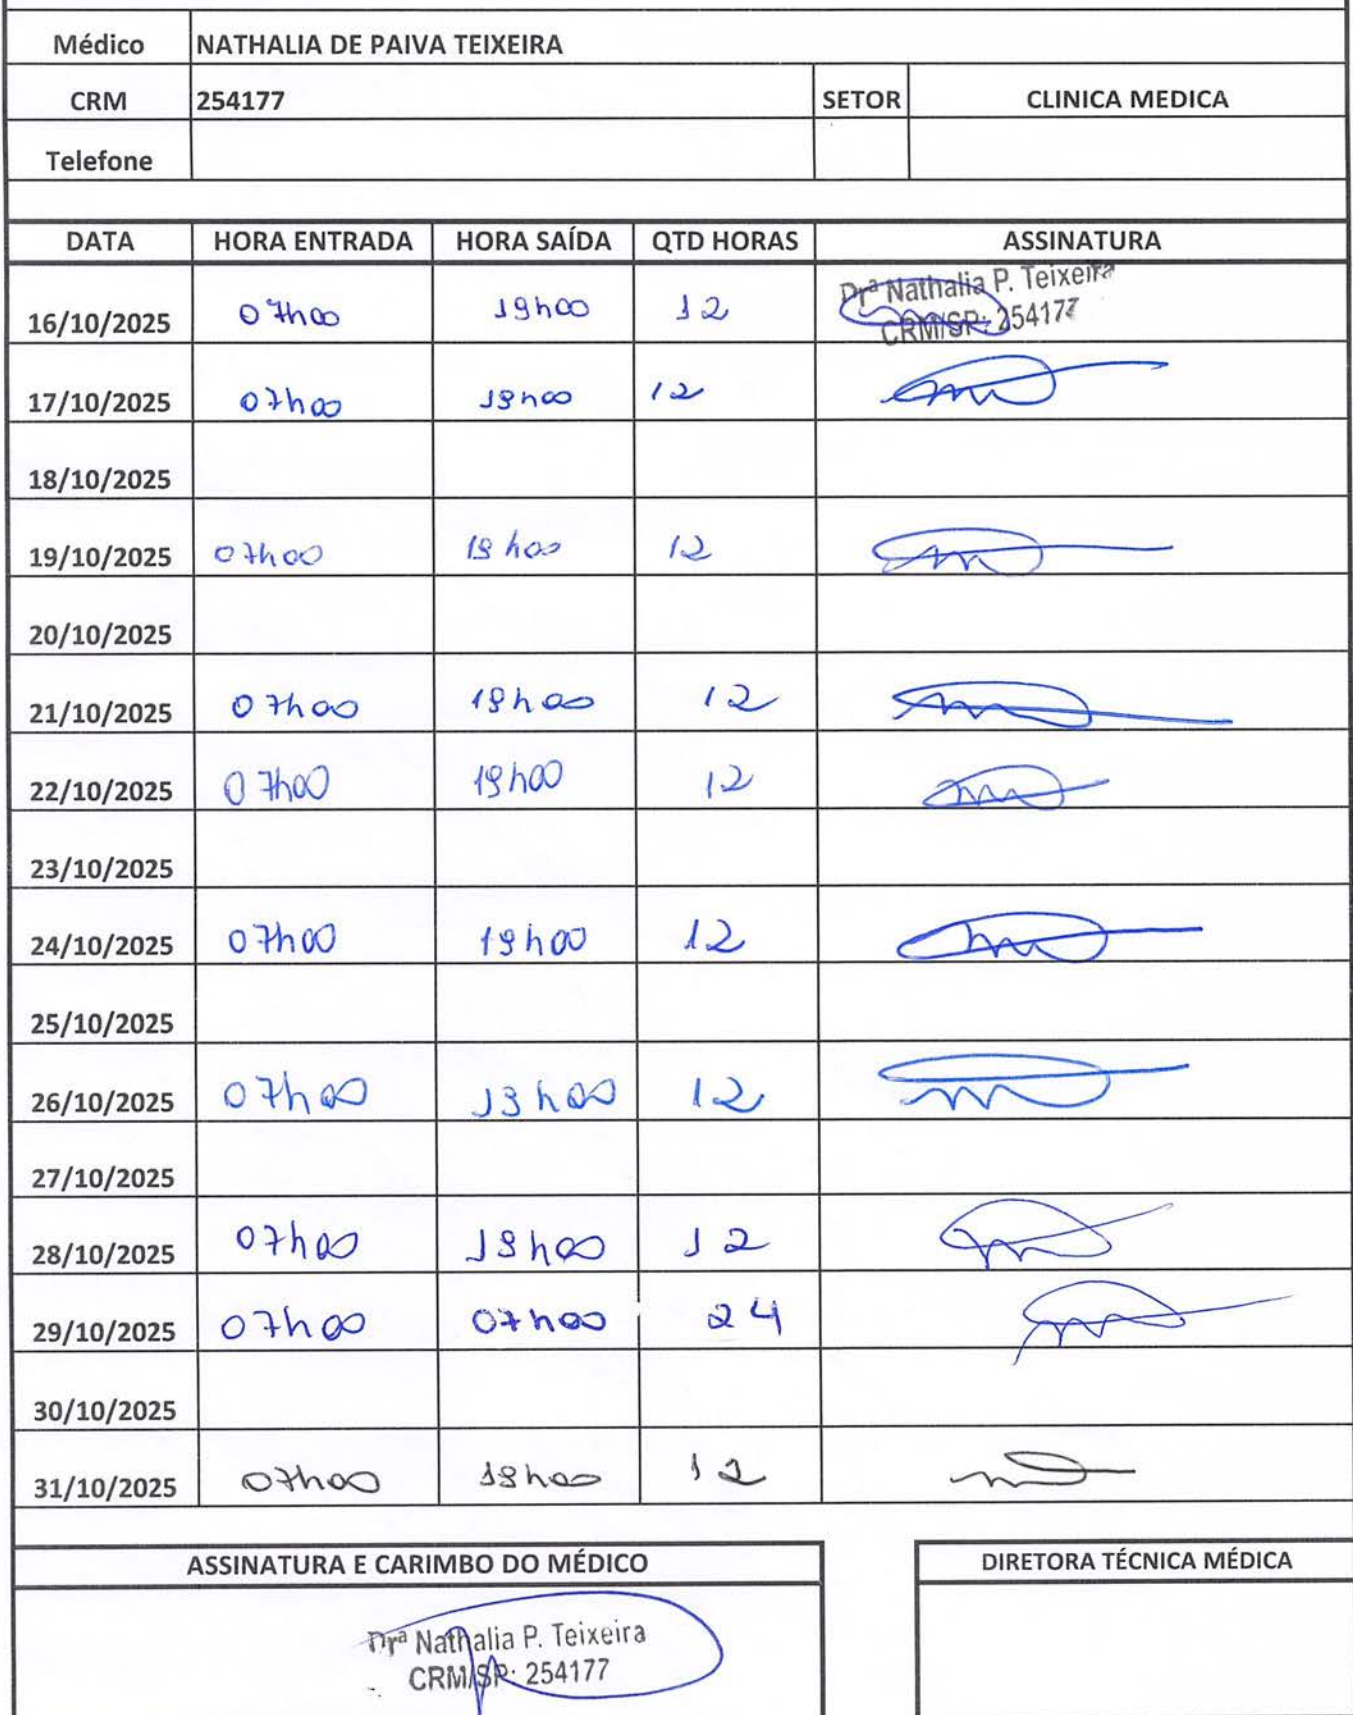 Médico NATHALIA DE PAIVA TEIXEIRA
CRM 254177 SETOR CLINICA MEDICA
Telefone
DATA HORA ENTRADA HORA SAÍDA QTD HORAS ASSINATURA
16/10/2025 07h00 19h00 12 Drª Nathalia P. Teixeira
CRM/SP: 254177
17/10/2025 07h00 19h00 12
18/10/2025
19/10/2025 07h00 19h00 12
20/10/2025
21/10/2025 07h00 19h00 12
22/10/2025 07h00 19h00 12
23/10/2025
24/10/2025 07h00 19h00 12
25/10/2025
26/10/2025 07h00 19h00 12
27/10/2025
28/10/2025 07h00 19h00 12
29/10/2025 07h00 07h00 24
30/10/2025
31/10/2025 07h00 19h00 12
ASSINATURA E CARIMBO DO MÉDICO DIRETORA TÉCNICA MÉDICA
Drª Nathalia P. Teixeira
CRM/SP: 254177